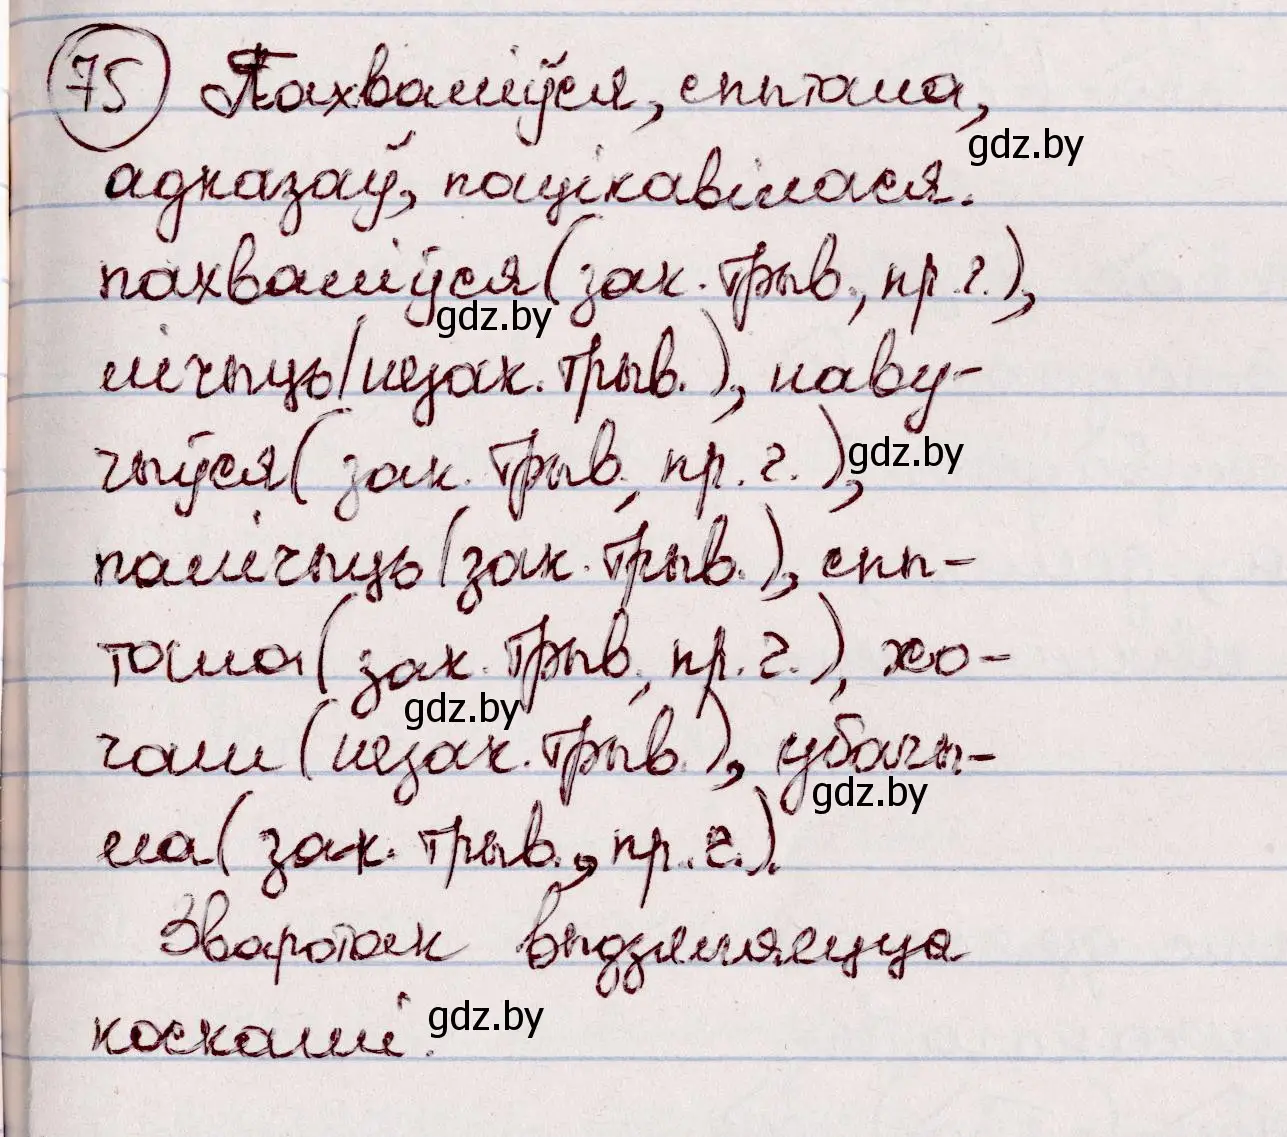 75 Пахваліўся, спытала,
gdz.by
адказаў, пацікавілася.
пахваліўся (зак. трыв., пр. г.),
gdz.by
лічыць (незак. трыв.), наву-
чыўся (зак. трыв., пр. г.),
gdz.by
палічыць (зак. трыв.), спы-
тала (зак. трыв., пр. г.), хо-
gdz.by
чали (незак. трыв.), убачы-
gdz.by
ла (зак. трыв., пр. г.).
Зваротак выдзяляецца
коскамі.
gdz.by